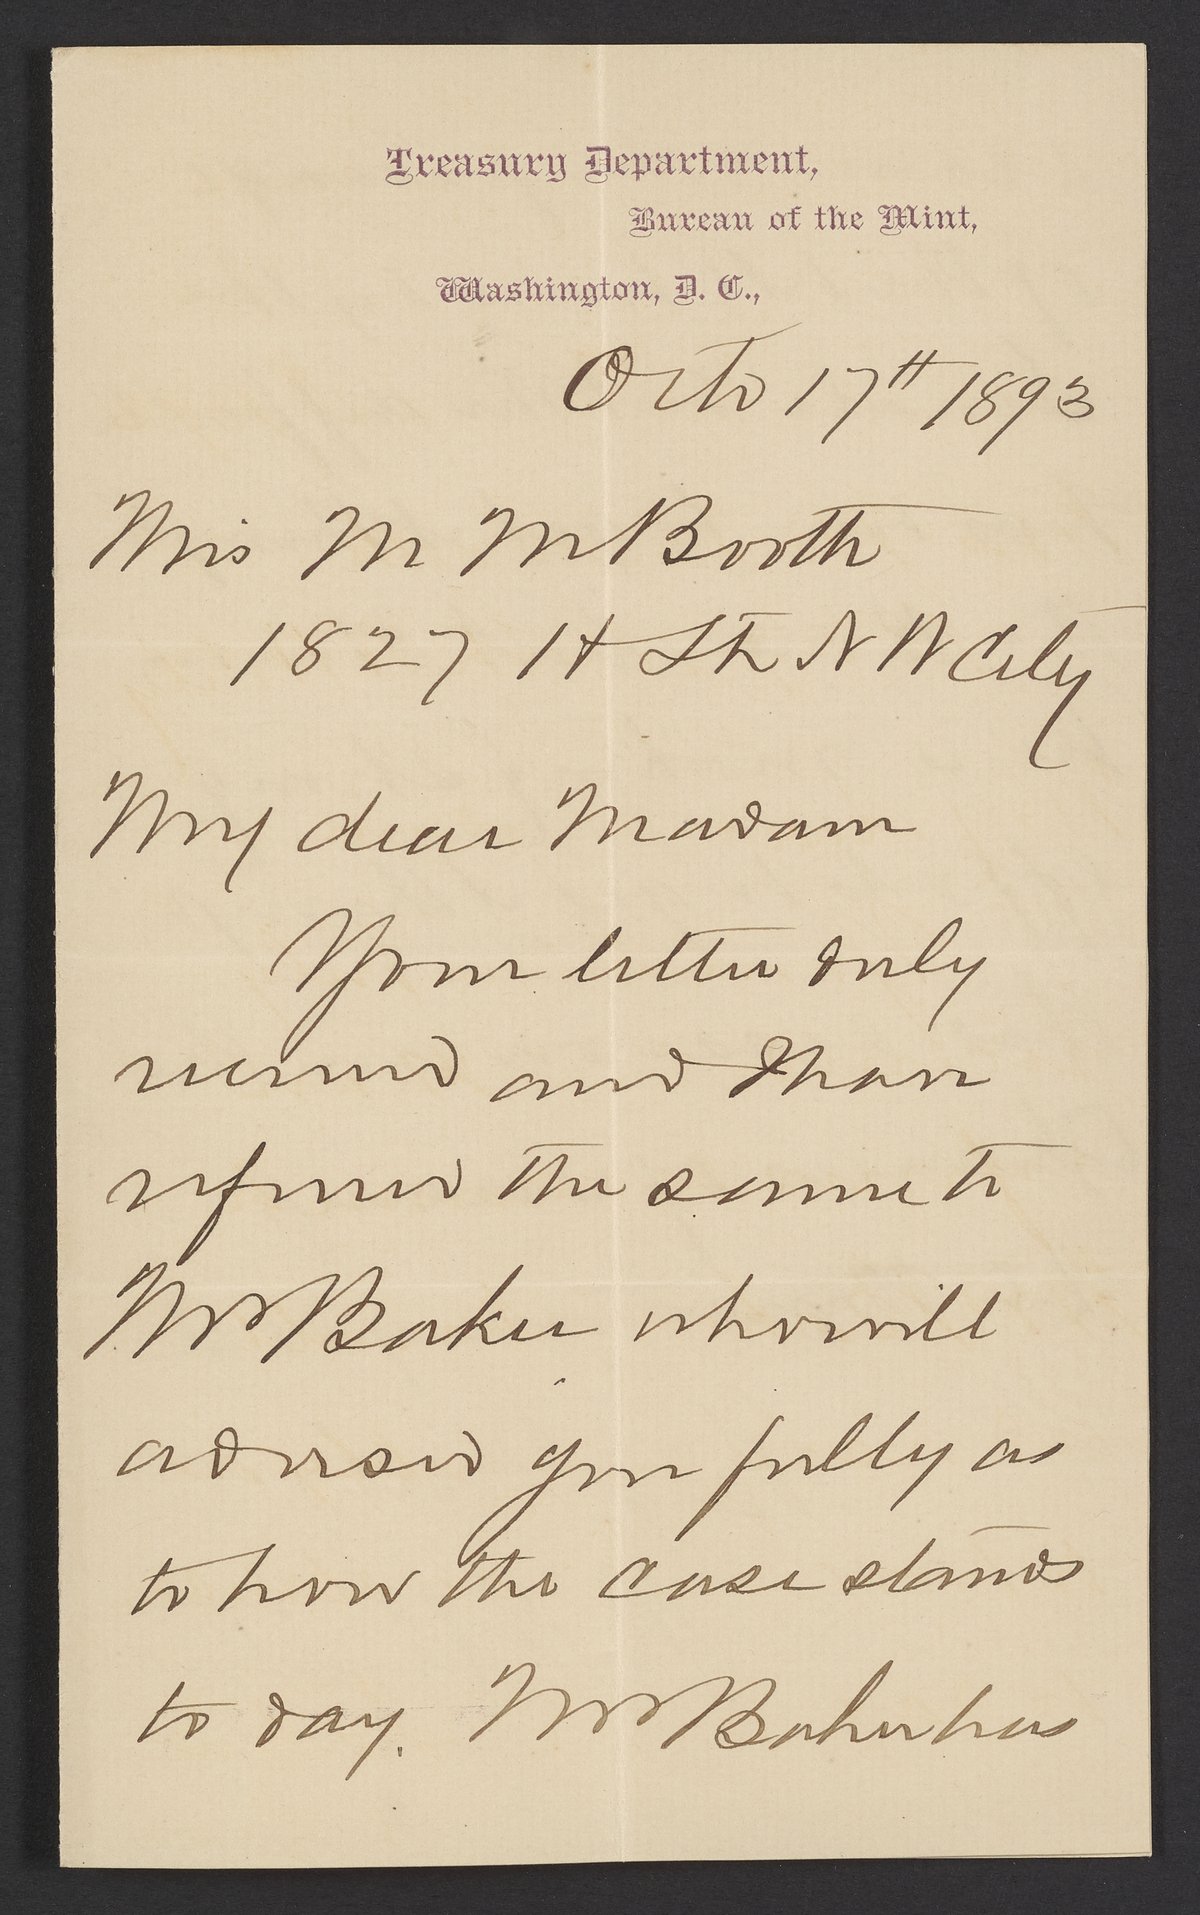 Treasury Department,
Bureau of the Mint,
Washington, D. C.,
Octo 17th 1893
Mrs M M Booth
1827 H St N W City
My dear Madam
Your letter duly
received and I have
referred the same to
Mr Baker who will
advise you fully as
to how the case stands
to day. Mr Baker has